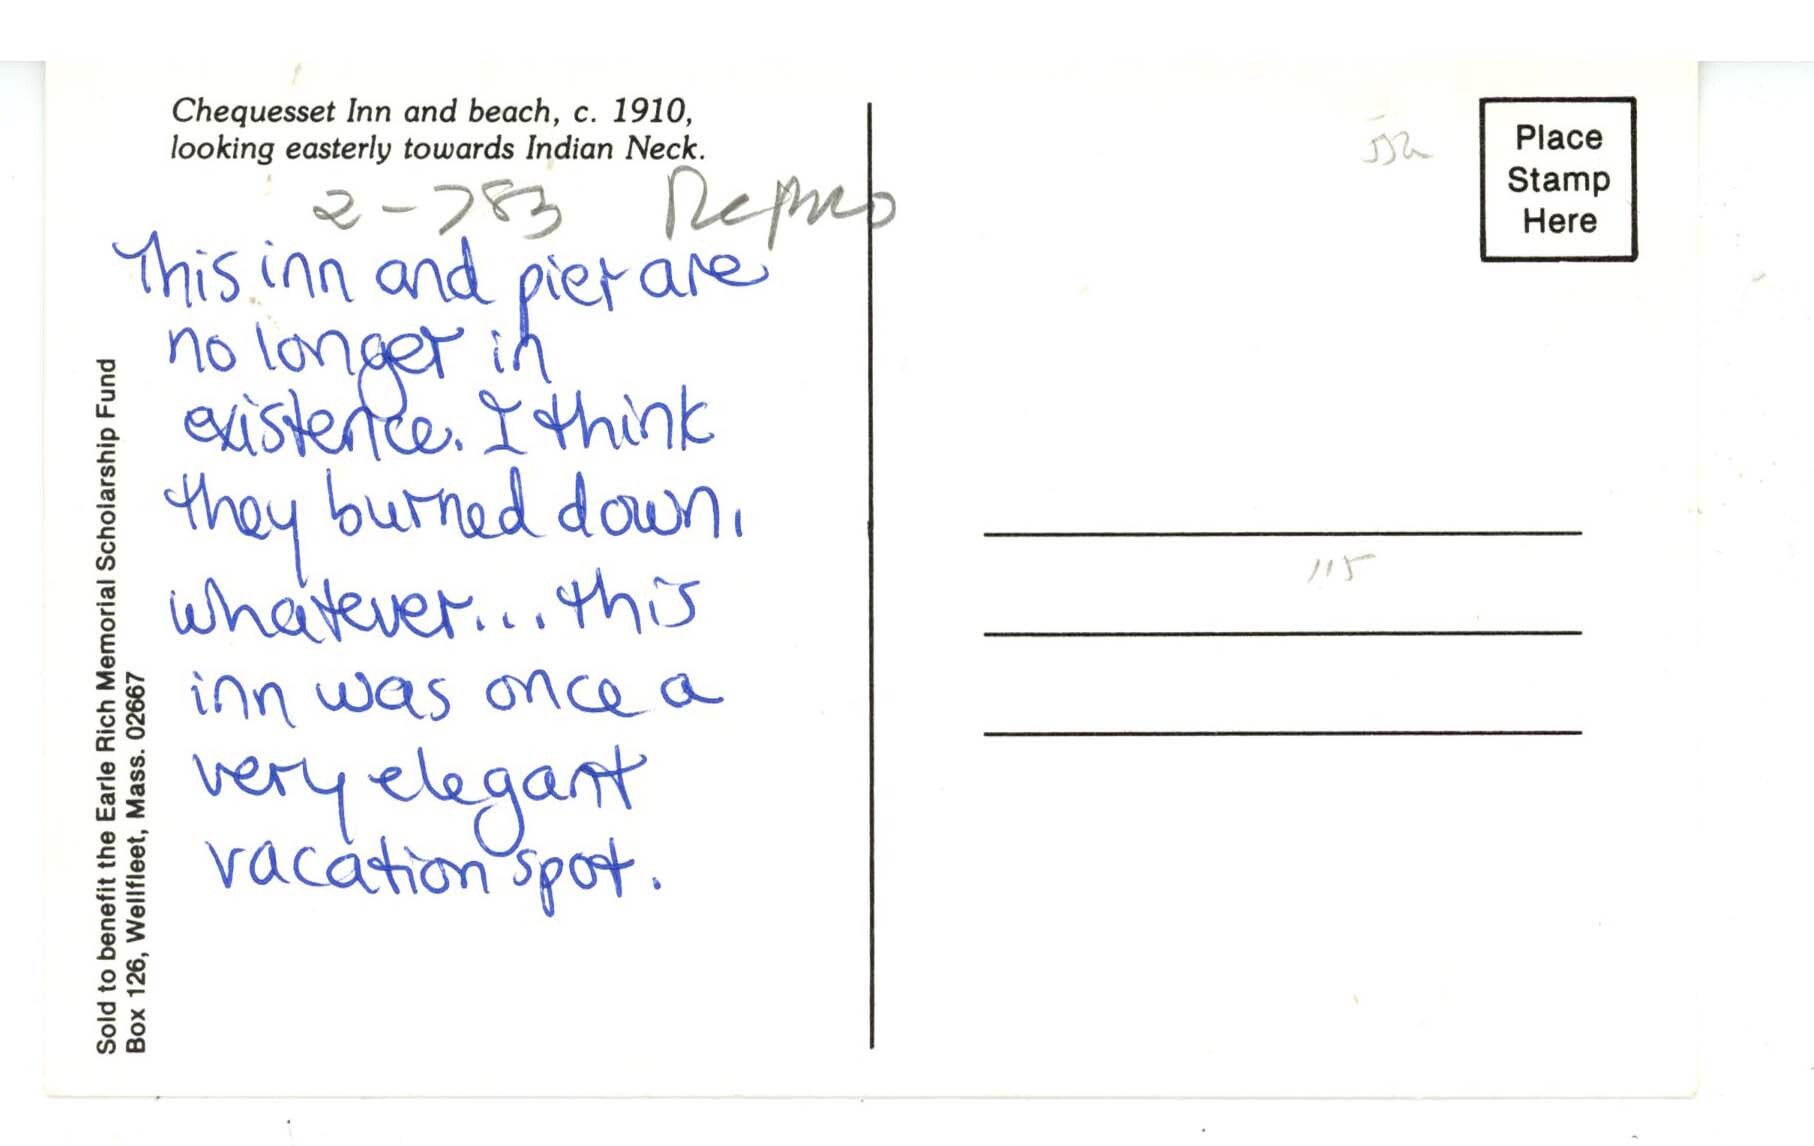 Chequesset Inn and beach, c. 1910,
looking easterly towards Indian Neck.
2-783 Repro
This inn and pier are
no longer in
existence. I think
they burned down.
whatever... this
inn was once a
very elegant
vacation spot.
Sold to benefit the Earle Rich Memorial Scholarship Fund
Box 126, Wellfleet, Mass. 02667
Place
Stamp
Here
115